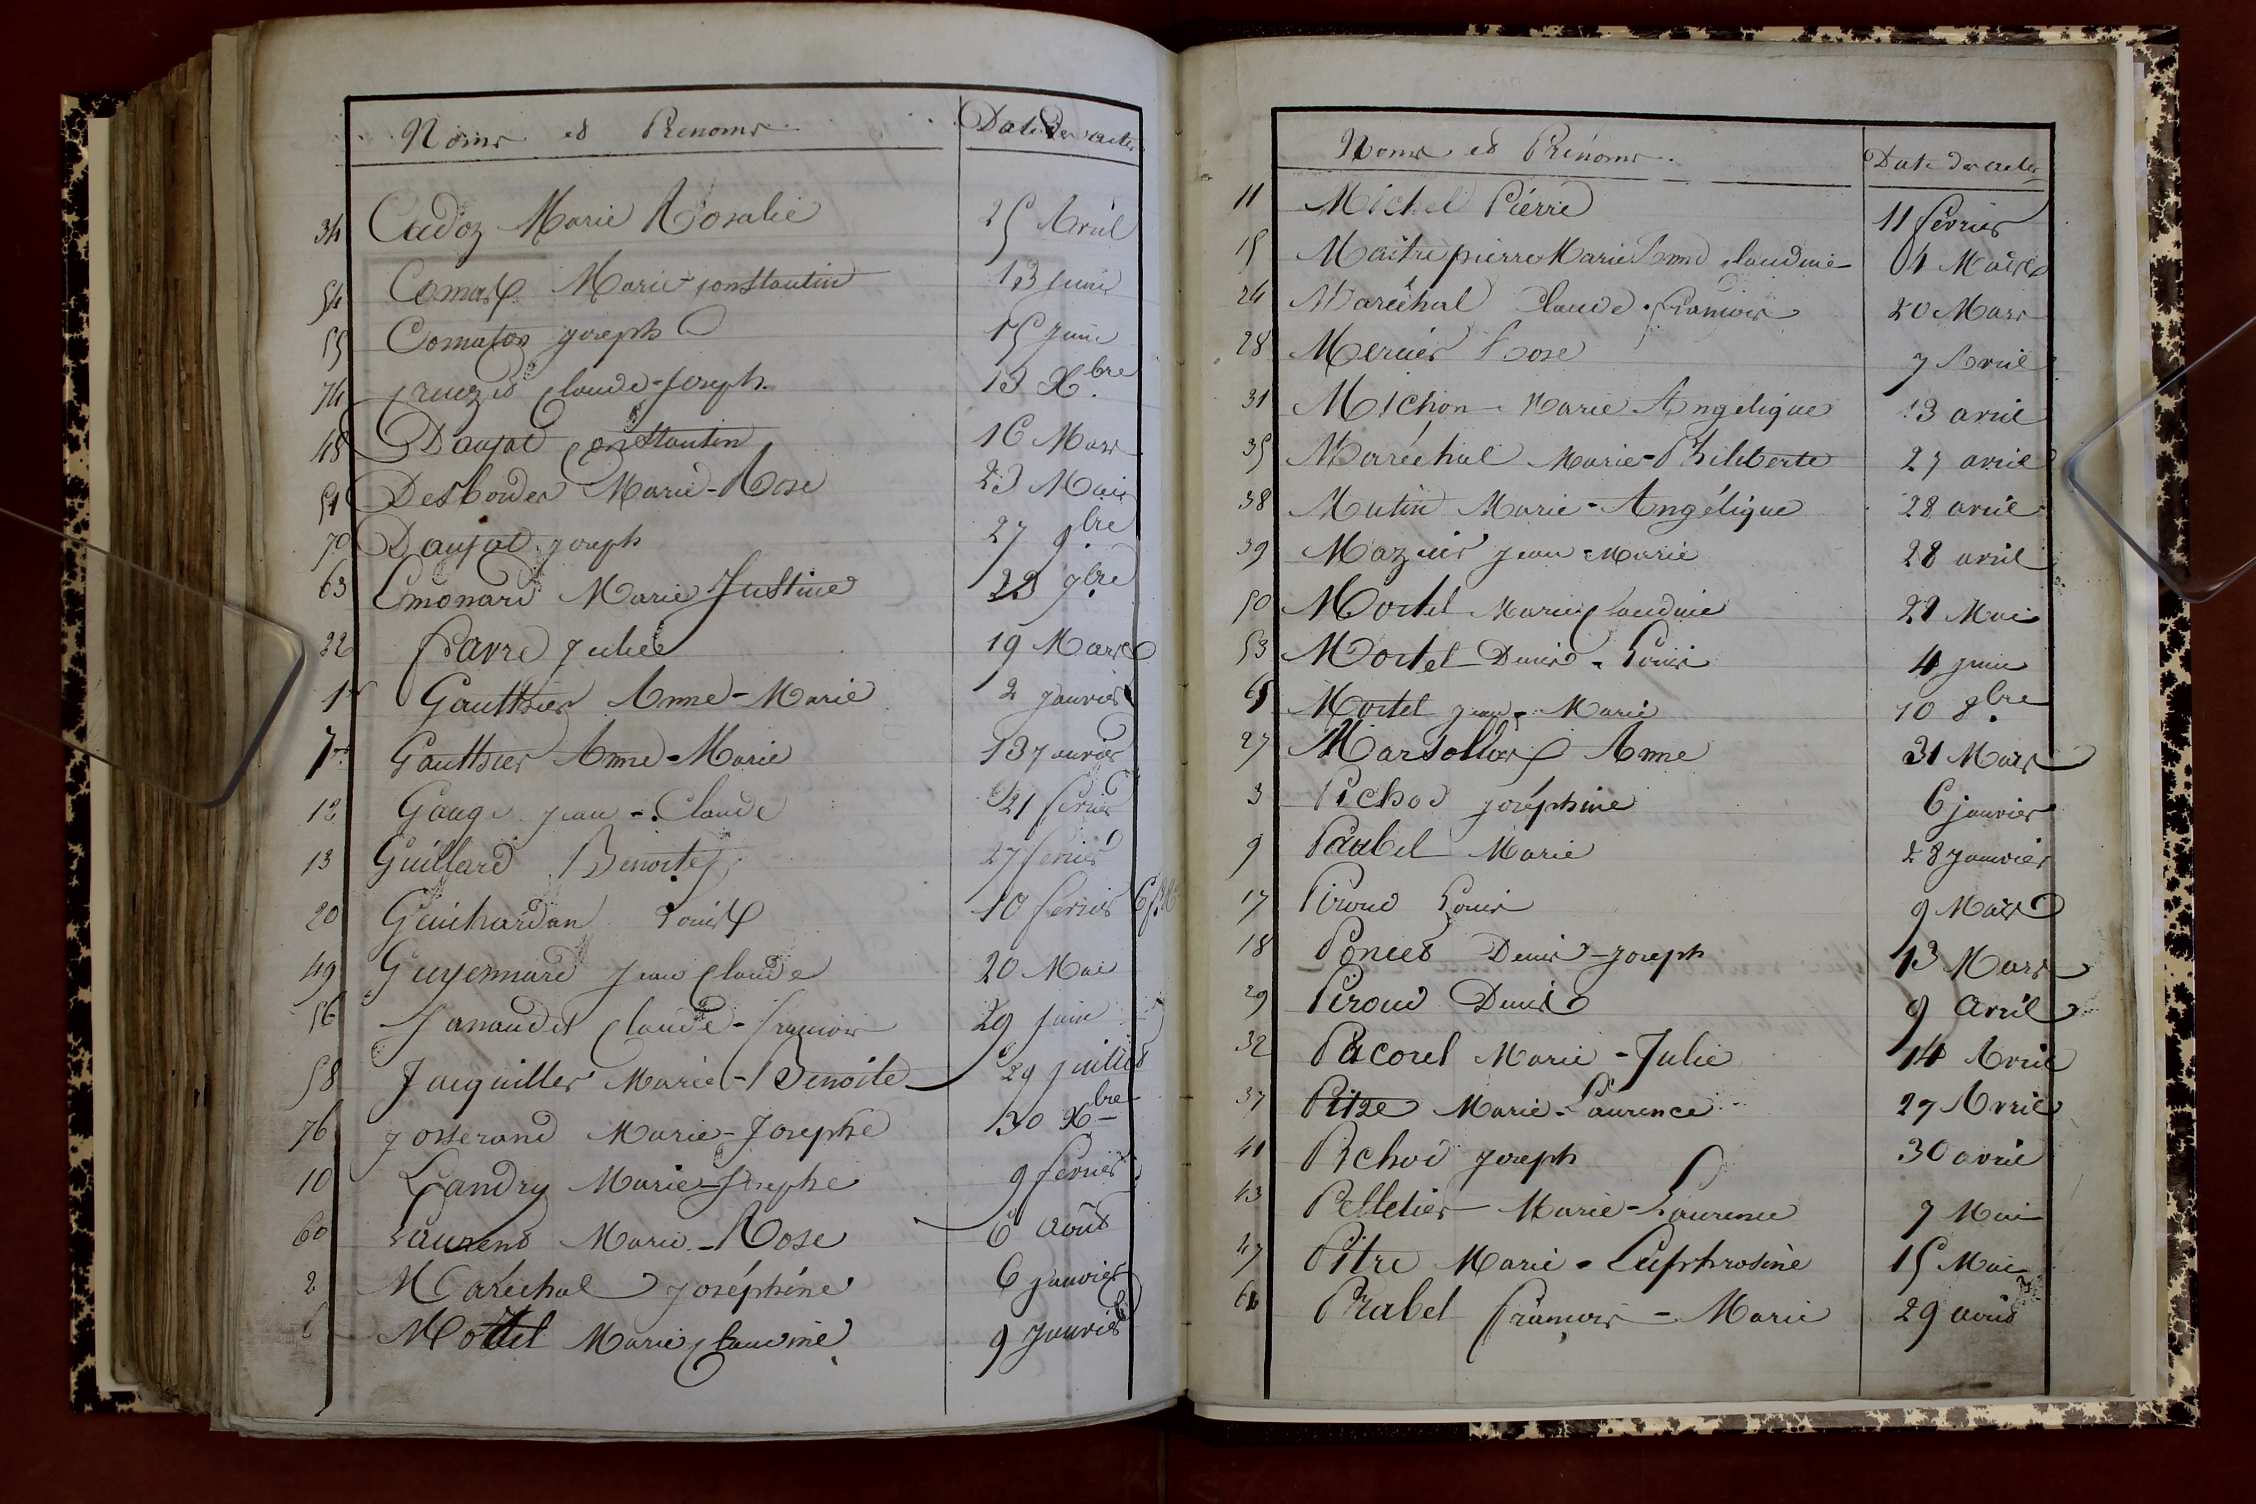 Noms et Prenoms Date des actes
34 Cadoz Marie Rosalie 25 Avril
54 Comas Marie-Constantin 13 Juin
55 Comaton Joseph 15 Juin
74 Cruczis Claude-Joseph 13 Xbre
48 Daujat Constantin 16 Mars
51 Desbordes Marie-Rose 23 Mai
70 Daujat Joseph 27 9bre
63 Emonard Marie Justine 23 7bre
22 Favre Julie 19 Mars
1er Gauthier Anne-Marie 2 Janvier
7 Gauthier Anne-Marie 13 Janvier
12 Gauge Jean-Claude 21 fevrier
13 Guillard Benoite 27 fevrier
20 Guichardan Louis 10 fevrier
49 Guyennard Jean Claude 20 Mai
56 Janaudet Claude-francois 29 Juin
58 Jacquiller Marie-Benoite 29 Juillet
76 Josserand Marie-Josephe 30 Xbre
10 Landry Marie-Josephe 9 fevrier
60 Laurend Marie-Rose 6 Août
2 Maréchal Joséphine 6 Janvier
6 Mottel Marie Claudine 9 Janvier
Noms et Prénoms Date des actes
11 Michel Pierre 11 fevrier
15 Maitrepierre Marie Anne Claudine 4 Mars
24 Maréchal Claude francois 20 Mars
28 Mercier Rose 7 Avril
31 Michon Marie Angelique 13 avril
35 Maréchal Marie-Philiberte 27 avril
38 Mutin Marie-Angélique 28 avril
39 Mazuir Jean-Marie 28 avril
50 Mortel Marie Claudine 22 Mai
53 Mortel Denis-Louis 4 Juin
65 Mortel Jean-Marie 10 8bre
27 Marsollier Anne 31 Mars
3 Pichod Joséphine 6 janvier
9 Paubel Marie 28 Janvier
17 Piroud Louis 9 Mars
18 Poncet Denis-Joseph 13 Mars
29 Piroud Denis 9 Avril
32 Pacorel Marie-Julie 14 Avril
37 Pitre Marie-Laurence 27 Avril
41 Pichod Joseph 30 avril
43 Pelletier Marie-Laurence 7 Mai
47 Pitre Marie-Euphrosine 15 Mai
Prabel françois-Marie 29 août